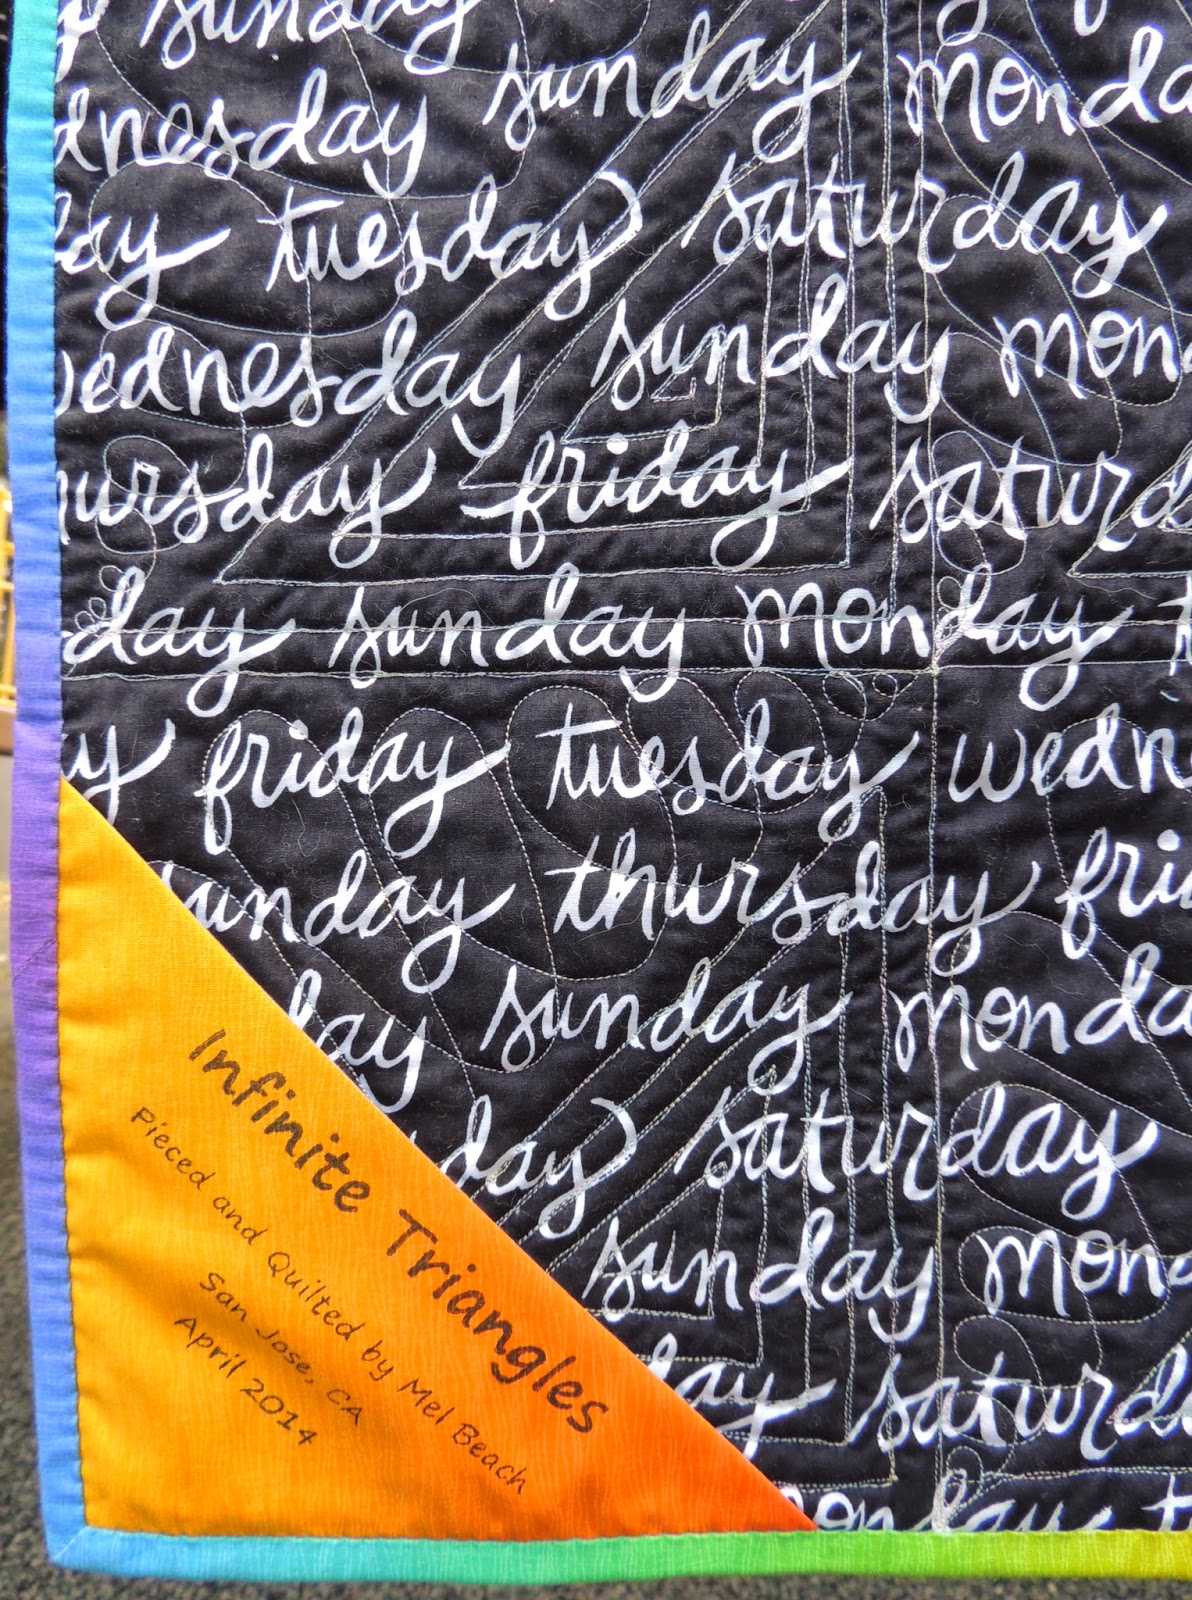 sunday
dnesday sunday monda
day tuesday saturday
wednesday sunday mon
ursday friday saturd
day sunday monday t
y friday tuesday wedn
sunday thursday fri
day sunday monda
day saturday
sunday mon
day saturd
onday t
Infinite Triangles
Pieced and Quilted by Mel Beach
San Jose, CA
April 2014